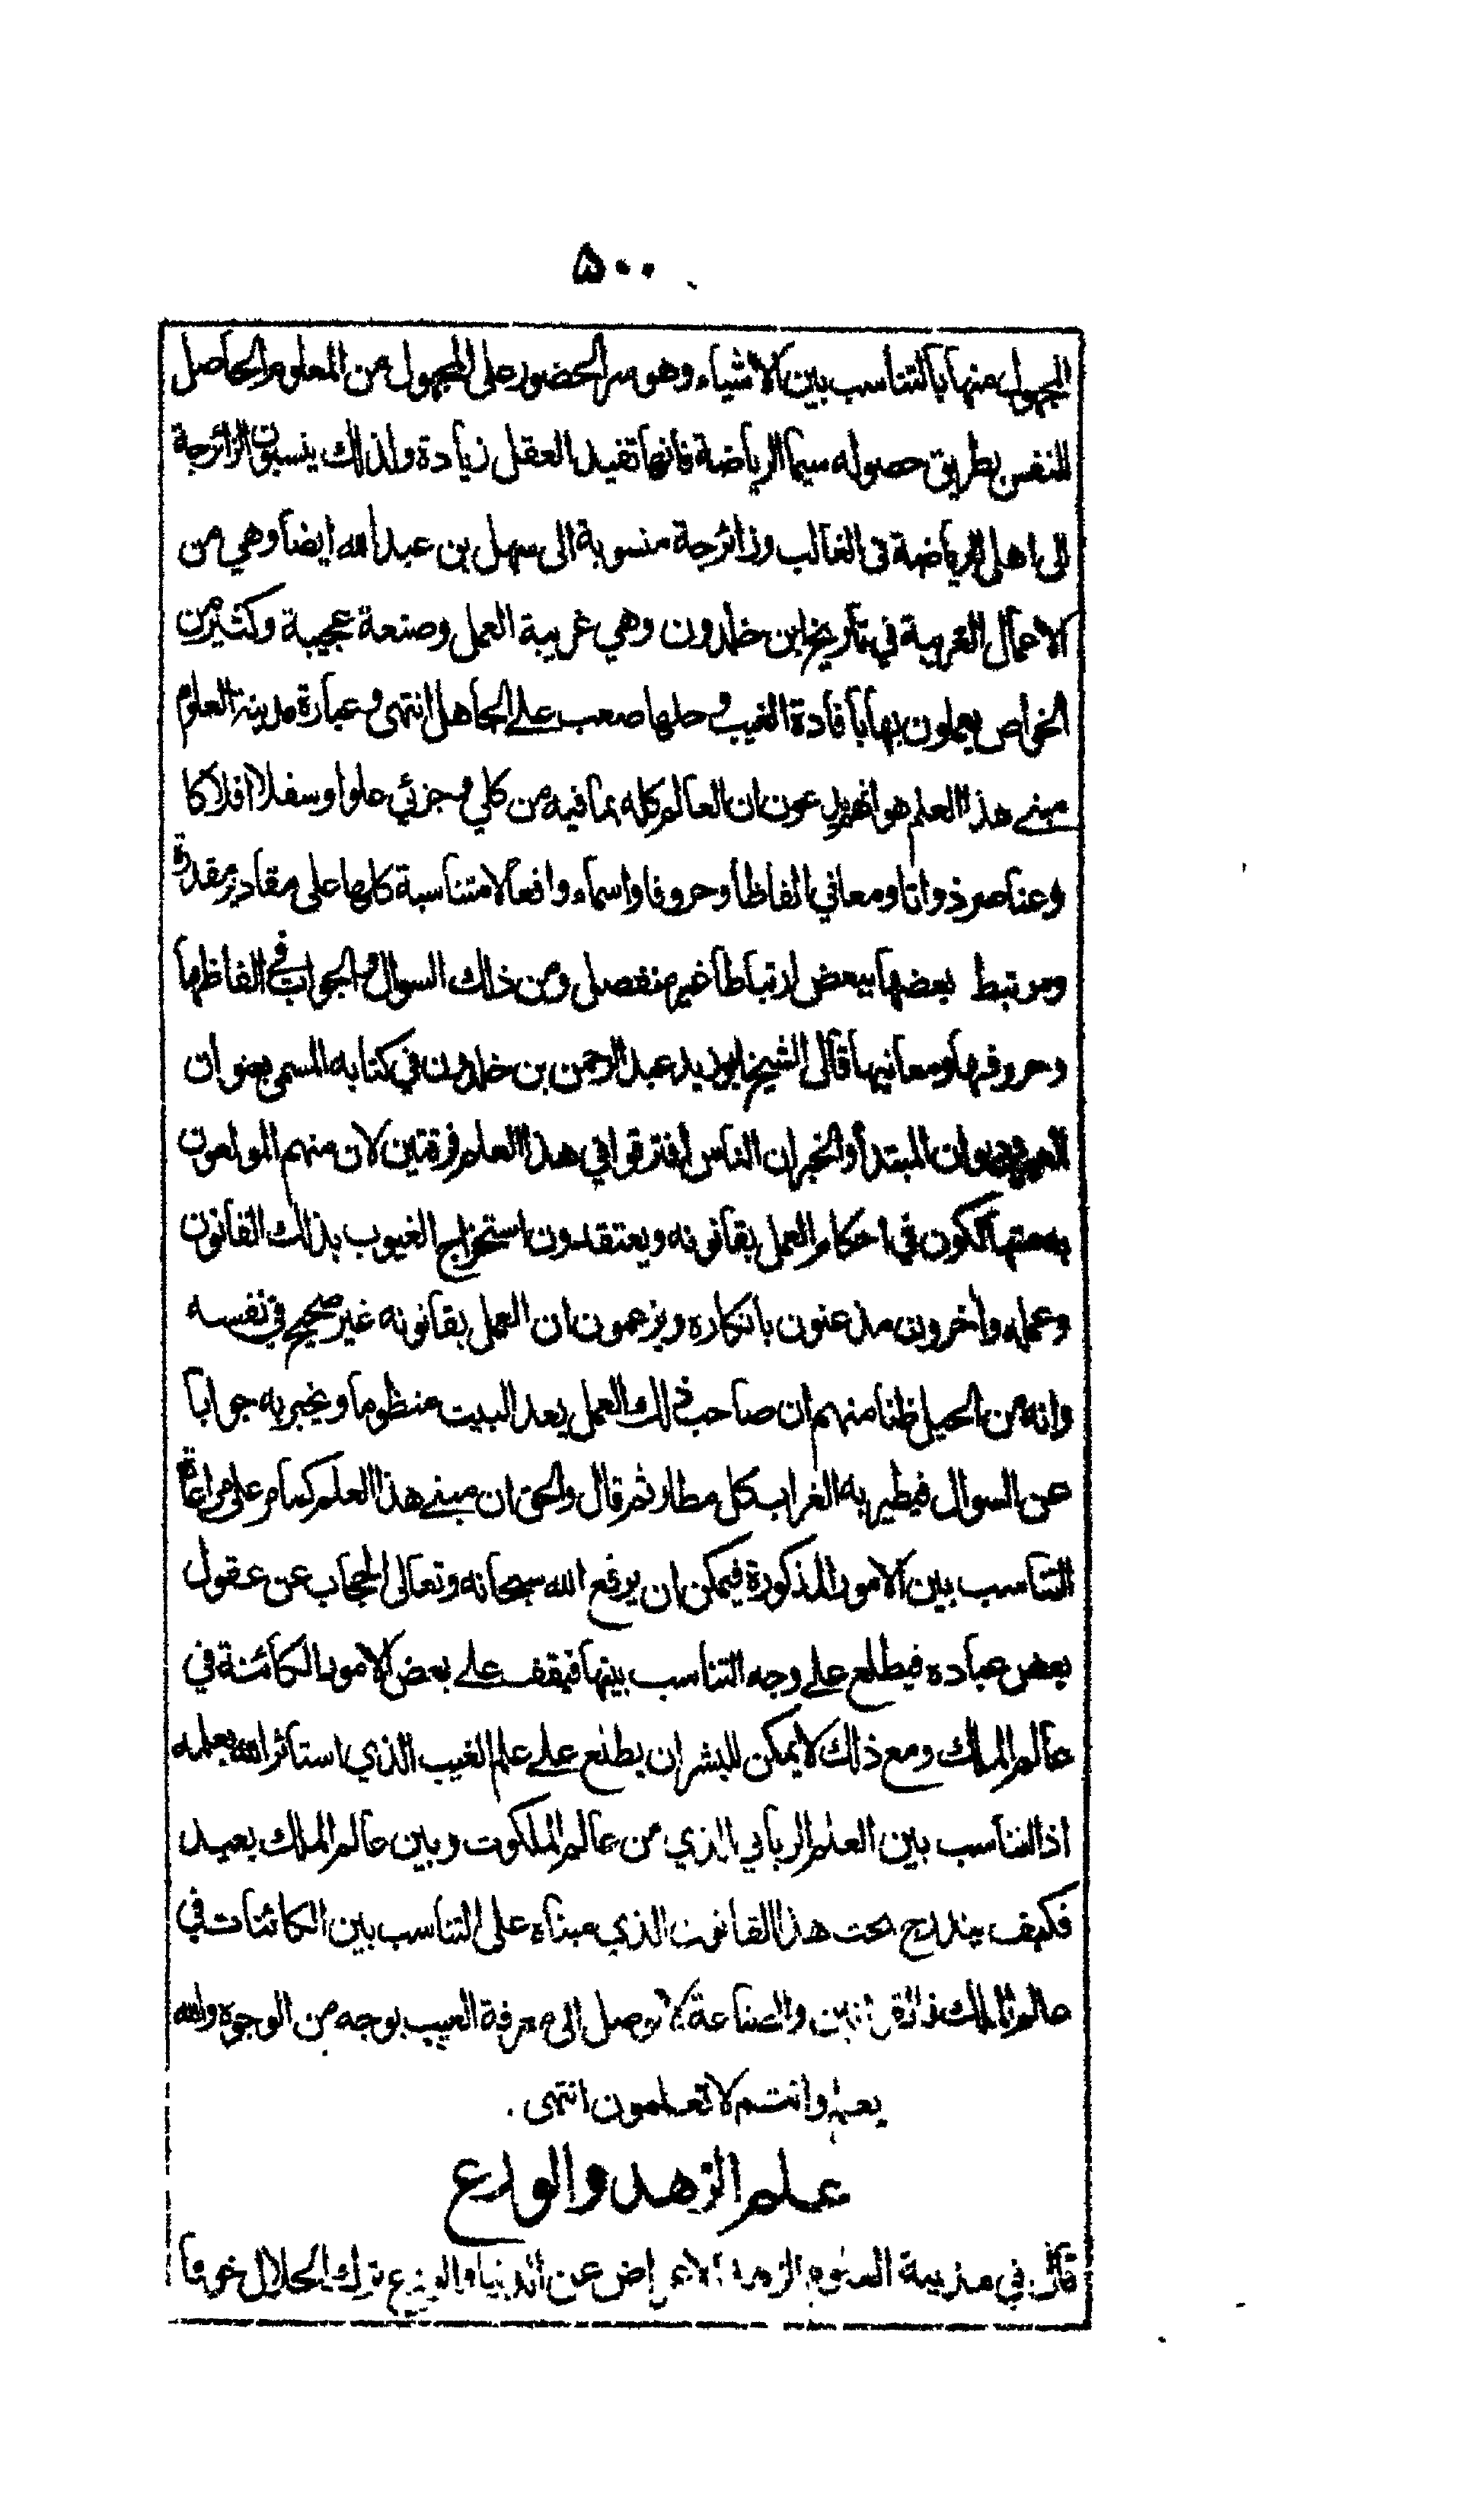 ۵۰۰
المجهول منها بالتناسب بين الاشياء وهو سر الحضور على المجهول من المعلوم الحاصل
للنفس بطريق حصوله سيما الرياضة فانها تفيد العقل زيادة ولذلك ينسبون الزائرجة
الى اهل الرياضة في الغالب وزائرجة منسوبة الى سهل بن عبد الله ايضا وهي من
الاعمال الغريبة في تاريخ ابن خلدون وهي غريبة العمل وصنعة عجيبة وكثير من
الخواص يعملون بها بافادة الغيب وحلها صعب على الجاهل انتهى وعبارة مدينة العلوم
مبنى هذا العلم هو انهم يدعون ان العالم كله بما فيه من كلي وجزئي علوا وسفلا افلاكا
وعناصر ذواتا ومعاني الفاظا وحروفا واسماء وافعالا متناسبة كلها على مقادير مقدرة
ومرتبط بعضها ببعض ارتباطا غير منفصل ومن ذلك السوال والجواب في الفاظها
وحروفها ومعانيها قال الشيخ ابو زيد عبد الرحمن بن خلدون في كتابه المسمى بعنوان
العبر وديوان المبتدأ والخبر ان الناس افترقوا في هذا العلم فرقتين لان منهم المولعون
بصحتها لكون في احكام العمل بقانونه ويعتقدون استخراج الغيوب بذلك القانون
وعمله وآخرون مذعنون بانكاره ويزعمون ان العمل بقانونه غير صحيح في نفسه
وانه من الحيل ظنا منهم ان صاحب ذلك العمل يعد البيت منظوما ويخبر به جوابا
عن السوال فيطير به الغراب كل مطار ثم قال والحق ان مبنى هذا العلم كما مر على مراعاة
التناسب بين الامور المذكورة فيمكن ان يرفع الله سبحانه وتعالى الحجاب عن عقول
بعض عباده فيطلع على وجه التناسب بينها فيقف على بعض الامور الكائنة في
عالم الملك ومع ذلك لا يمكن للبشر ان يطلع على علم الغيب الذي استاثر الله بعلمه
اذ التناسب بين العلم الرباني الذي من عالم الملكوت وبين عالم الملك بعيد
فكيف يندرج تحت هذا القانون الذي مبناه على التناسب بين الكائنات في
عالم الملك والصناعة لا توصل الى معرفة الغيب بوجه من الوجوه والله
يعلم وانتم لا تعلمون انتهى .
علم الزهد والورع
قال في مدينة العلوم الزهد الاعراض عن الدنيا والورع ترك الحلال خوفا